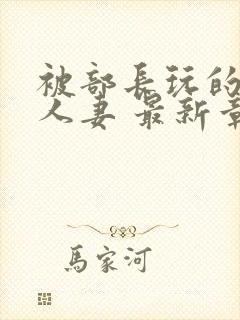 被部长玩的
人妻 最新章
馬家河